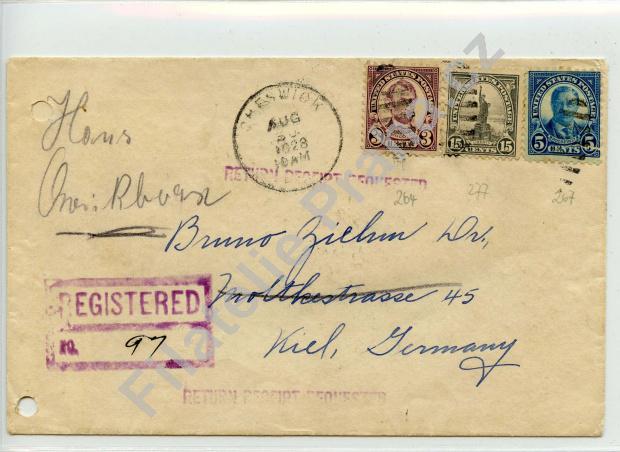 CHESWICK
AUG
1928
10AM
UNITED STATES POSTAGE
3 CENTS 3
UNITED STATES POSTAGE
15 CENTS 15
UNITED STATES POSTAGE
5 CENTS 5
RETURN RECEIPT REQUESTED
264
277
267
Hans
Bruno Ziehm Dr.,
Moltkestrasse 45
Kiel, Germany
REGISTERED
NO. 97
RETURN RECEIPT REQUESTED